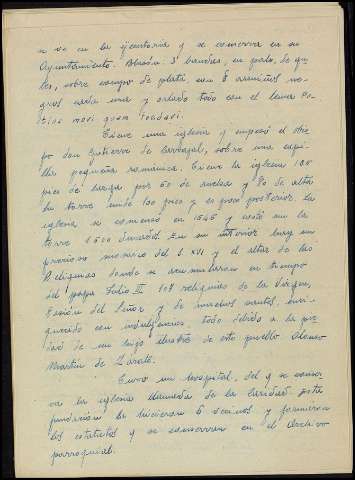 se ve en la ejecutoria y se conserva en su
Ayuntamiento. Blasón: 3 bandas, en palo, de gu-
les, sobre campo de plata con 8 armiños ne-
gros cada una y orlado todo con el lema Po-
tius mori quam foedari.
Tiene una iglesia y empezó el obis-
po don Gutierre de Carbajal, sobre una capi-
lla pequeña románica. Tiene la iglesia 100
pies de larga por 50 de ancha y 80 de alta
La torre mide 100 pies y es posterior, la
iglesia se comenzó en 1545 y costó
torre 6.500 ducados. En su interior hay un
precioso del S. XVI y el altar de las
Reliquias donde se acumularon en tiempo
del papa Julio III 107 reliquias de la Virgen,
Pasión del Señor y de muchos santos, enri-
quecido con indulgencias, todo debido a la pie-
dad de un hijo ilustre de este pueblo Alonso
Martín de Zarate.
Tuvo un hospital, del q se conser-
va la iglesia llamada de la Caridad. Esta
fundación la hicieron 6 vecinos y formaron
los estatutos q se conservan en el Archivo
parroquial.